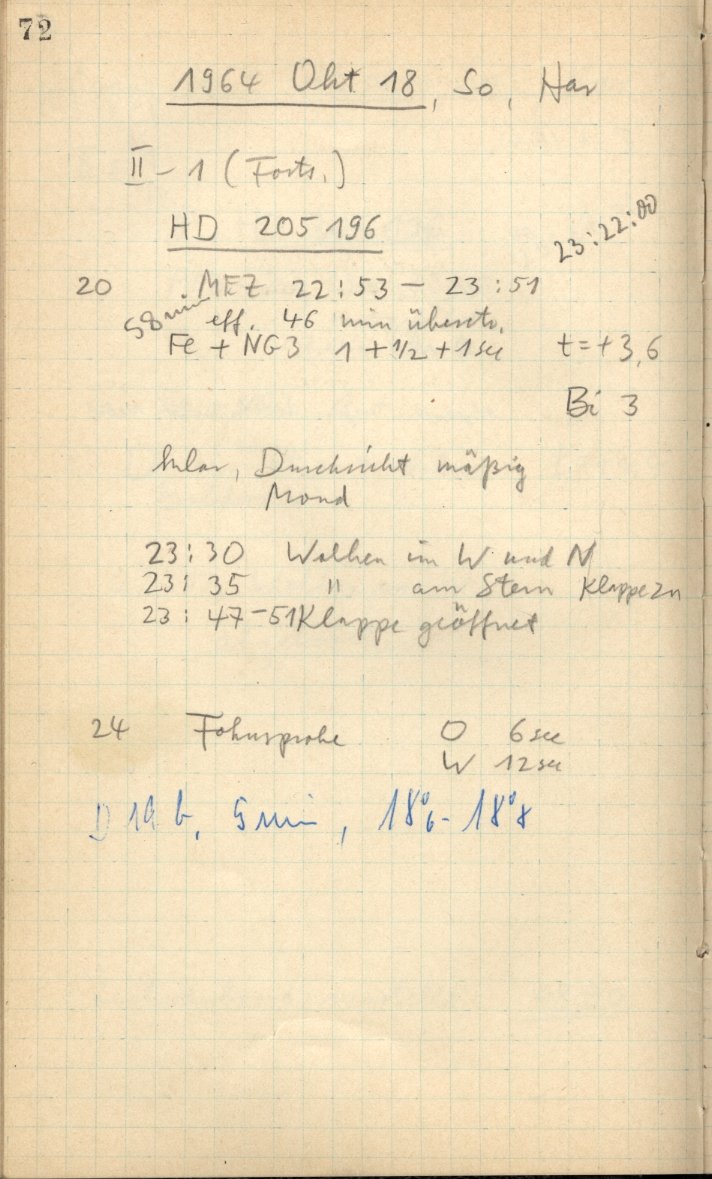 72
1964 Okt 18, So, Har
II - 1 (Forts.)
HD 205196
23:22:00
20 MEZ 22:53 - 23:51
58 min eff. 46 min übersetz.
Fe + NG3 1 + 1/2 + 1 sec t = + 3,6
Bi 3
klar, Durchsicht mäßig
Mond
23:30 Wolken im W und N
23:35 " am Stern Klappe zu
23:47-51 Klappe geöffnet
24 O 6 sec
W 12 sec
D 19 b, 5 min, 18°6 - 18°8